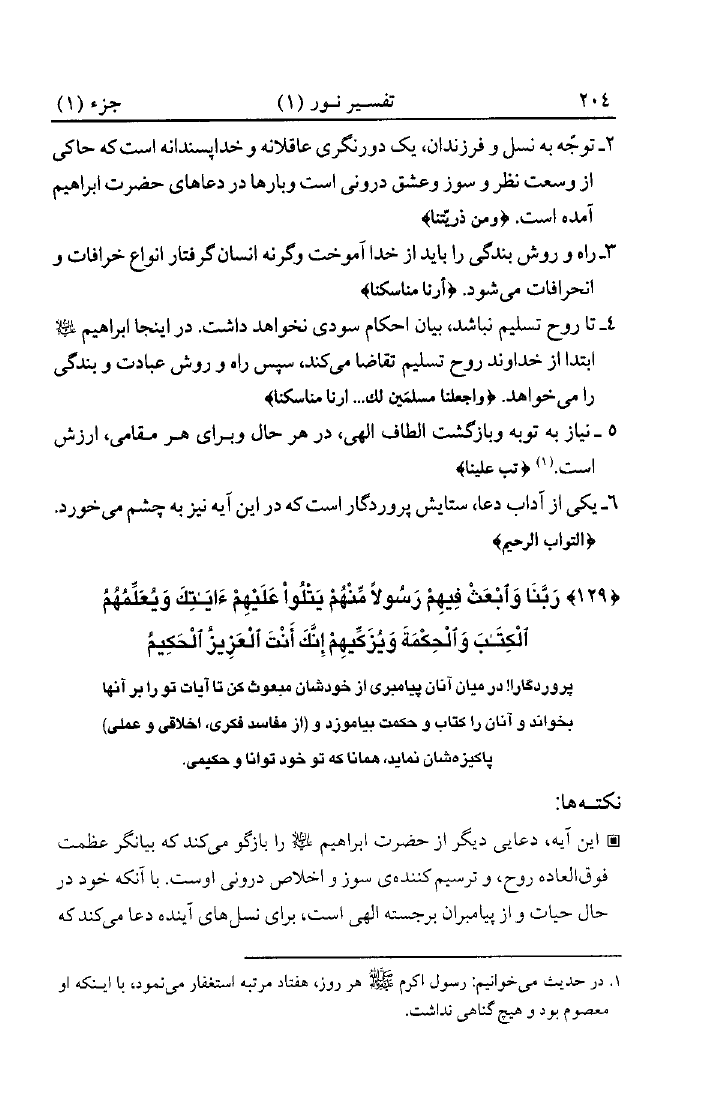 ٢٠٤ تفسیر نور (١) جزء (١)
٢ـ توجّه به نسل و فرزندان، یک دورنگری عاقلانه و خداپسندانه است که حاکی
از وسعت نظر و سوز وعشق درونی است وبارها در دعاهای حضرت ابراهیم
آمده است. ﴿ومن ذریّتنا﴾
٣ـ راه و روش بندگی را باید از خدا آموخت وگرنه انسان گرفتار انواع خرافات و
انحرافات می‌شود. ﴿أرنا مناسکنا﴾
٤ـ تا روح تسلیم نباشد، بیان احکام سودی نخواهد داشت. در اینجا ابراهیم علیه السلام
ابتدا از خداوند روح تسلیم تقاضا می‌کند، سپس راه و روش عبادت و بندگی
را می‌خواهد. ﴿واجعلنا مسلمَین لك... ارنا مناسکنا﴾
٥ ـ نیاز به توبه وبازگشت الطاف الهی، در هر حال وبرای هر مقامی، ارزش
است.(١) ﴿تب علینا﴾
٦ـ یکی از آداب دعا، ستایش پروردگار است که در این آیه نیز به چشم می‌خورد.
﴿التواب الرحیم﴾
﴿١٢٩﴾ رَبَّنَا وَٱبْعَثْ فِيهِمْ رَسُولاً مِّنْهُمْ يَتْلُواْ عَلَيْهِمْ ءَايَـٰتِكَ وَيُعَلِّمُهُمُ
ٱلْكِتَـٰبَ وَٱلْحِكْمَةَ وَيُزَكِّيهِمْ إِنَّكَ أَنْتَ ٱلْعَزِيزُ ٱلْحَكِيمُ
پروردگارا! در میان آنان پیامبری از خودشان مبعوث کن تا آیات تو را بر آنها
بخواند و آنان را کتاب و حکمت بیاموزد و (از مفاسد فکری، اخلاقی و عملی)
پاکیزه‌شان نماید، همانا که تو خود توانا و حکیمی.
نکته‌ها:
▣ این آیه، دعایی دیگر از حضرت ابراهیم علیه السلام را بازگو می‌کند که بیانگر عظمت
فوق‌العاده روح، و ترسیم کننده‌ی سوز و اخلاص درونی اوست. با آنکه خود در
حال حیات و از پیامبران برجسته الهی است، برای نسل‌های آینده دعا می‌کند که
١. در حدیث می‌خوانیم: رسول اکرم ﷺ هر روز، هفتاد مرتبه استغفار می‌نمود، با اینکه او
معصوم بود و هیچ گناهی نداشت.